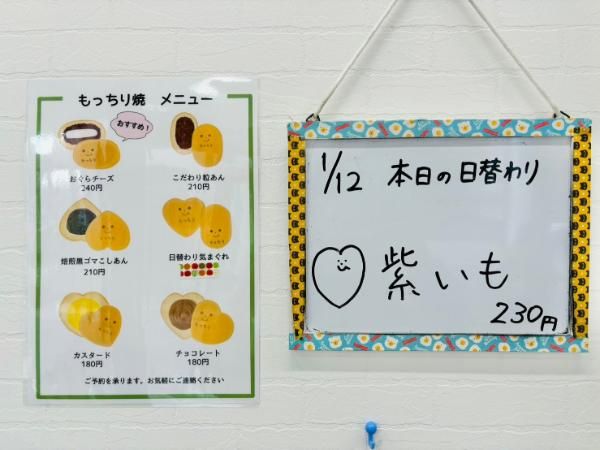 もっちり焼 メニュー
おすすめ!
おぐらチーズ
240円
こだわり粒あん
210円
焙煎黒ゴマこしあん
210円
日替わり気まぐれ
カスタード
180円
チョコレート
180円
ご予約を承ります。お気軽にご連絡ください
1/12 本日の日替わり
紫いも
230円